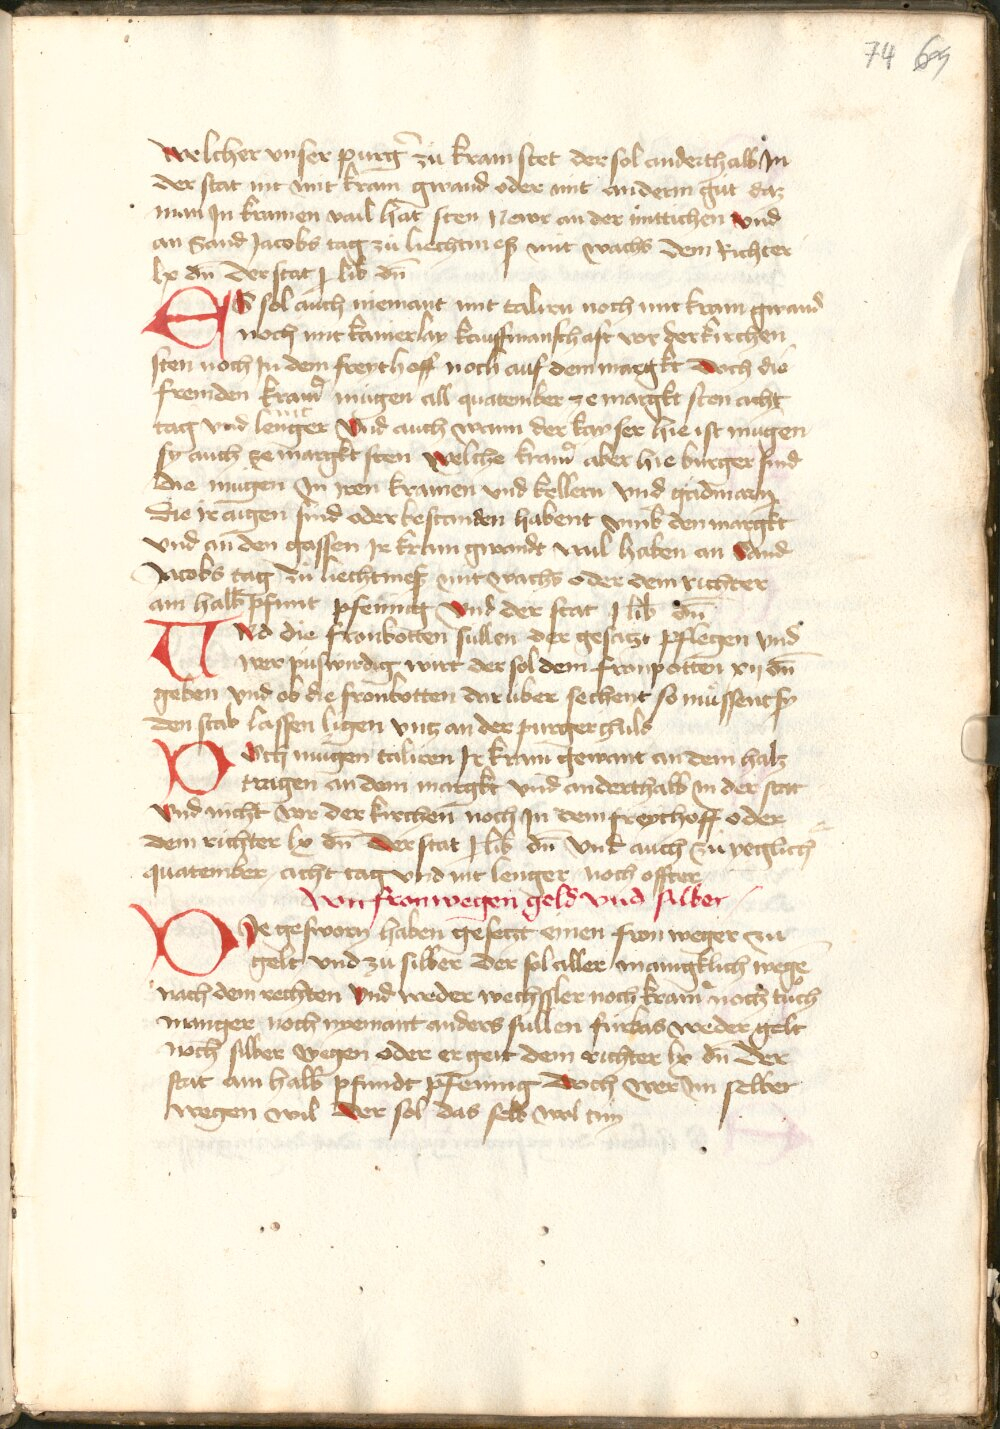 74 65
Welcher vnser purg̃ zu kram stet der sol anderthalb In
der stat nit mit kram gwand oder mit anderm gut daz
man In kramen vail hat sten Newr an der mittichen vnd
an Sand Jacobs tag zu liechtmess mit wachs dem Richter
lx dn̄ der stat j lib dn̄
ES sol auch niemant mit talirn noch mit kram gwand
noch mit kamerlay kauffmanschaft vor der kirchen
sten noch In dem freythoff noch auf dem margkt Doch die
fremden kram̃ mugen all quatember ze margkt sten acht
tag vnd lennger Vnd auch wann der kayser hie ist mugen
sy auch ze margkt sten Welche kram̃ aber hie burger sind
die mugen In iren kramen vnd kellern vnd gadmarn
die ir aigen sind oder bestanden habent vmb den margkt
vnd an den gassen Ir kram gwandt vail haben an Sand
Jacobs tag zu liechtmess mit wachs oder dem richter
ain halb pfunt pfennig Vnd der stat j lib dn̄
VNd die fronbotten sullen der gesetzt pflegen vnd
wer puswirdig wirt der sol dem fronpotten xij dn̄
geben vnd ob die fronbotten dar vber sechent so mussent sy
den stab lassen ligen vntz an der purger huld
DOch mugen talieren Ir kram gewant an dem hals
tragen an dem margkt vnd anderthalb in der stat
Vnd nicht vor der kirchen noch In dem freythoff oder
dem richter lx dn̄ Der stat j lib dn̄ Vnd auch zu yeglich
quatember acht tag vnd nit lenger noch offter
Von fronwegen gold vnd silber
DIe gesworn haben gesetzt einen fron weger zu
gelt vnd zu silber der sol aller maingklich wege
nach dem rechten Vnd weder wechssler noch kram̃ noch tuch
manger noch nyemant anders sullen furbas weder gelt
noch silber wegen oder er geit dem richter lx dn̄ Der
stat ain halb pfundt pfennig Doch wer Im selber
wegen wil Der sol das selb wol tun